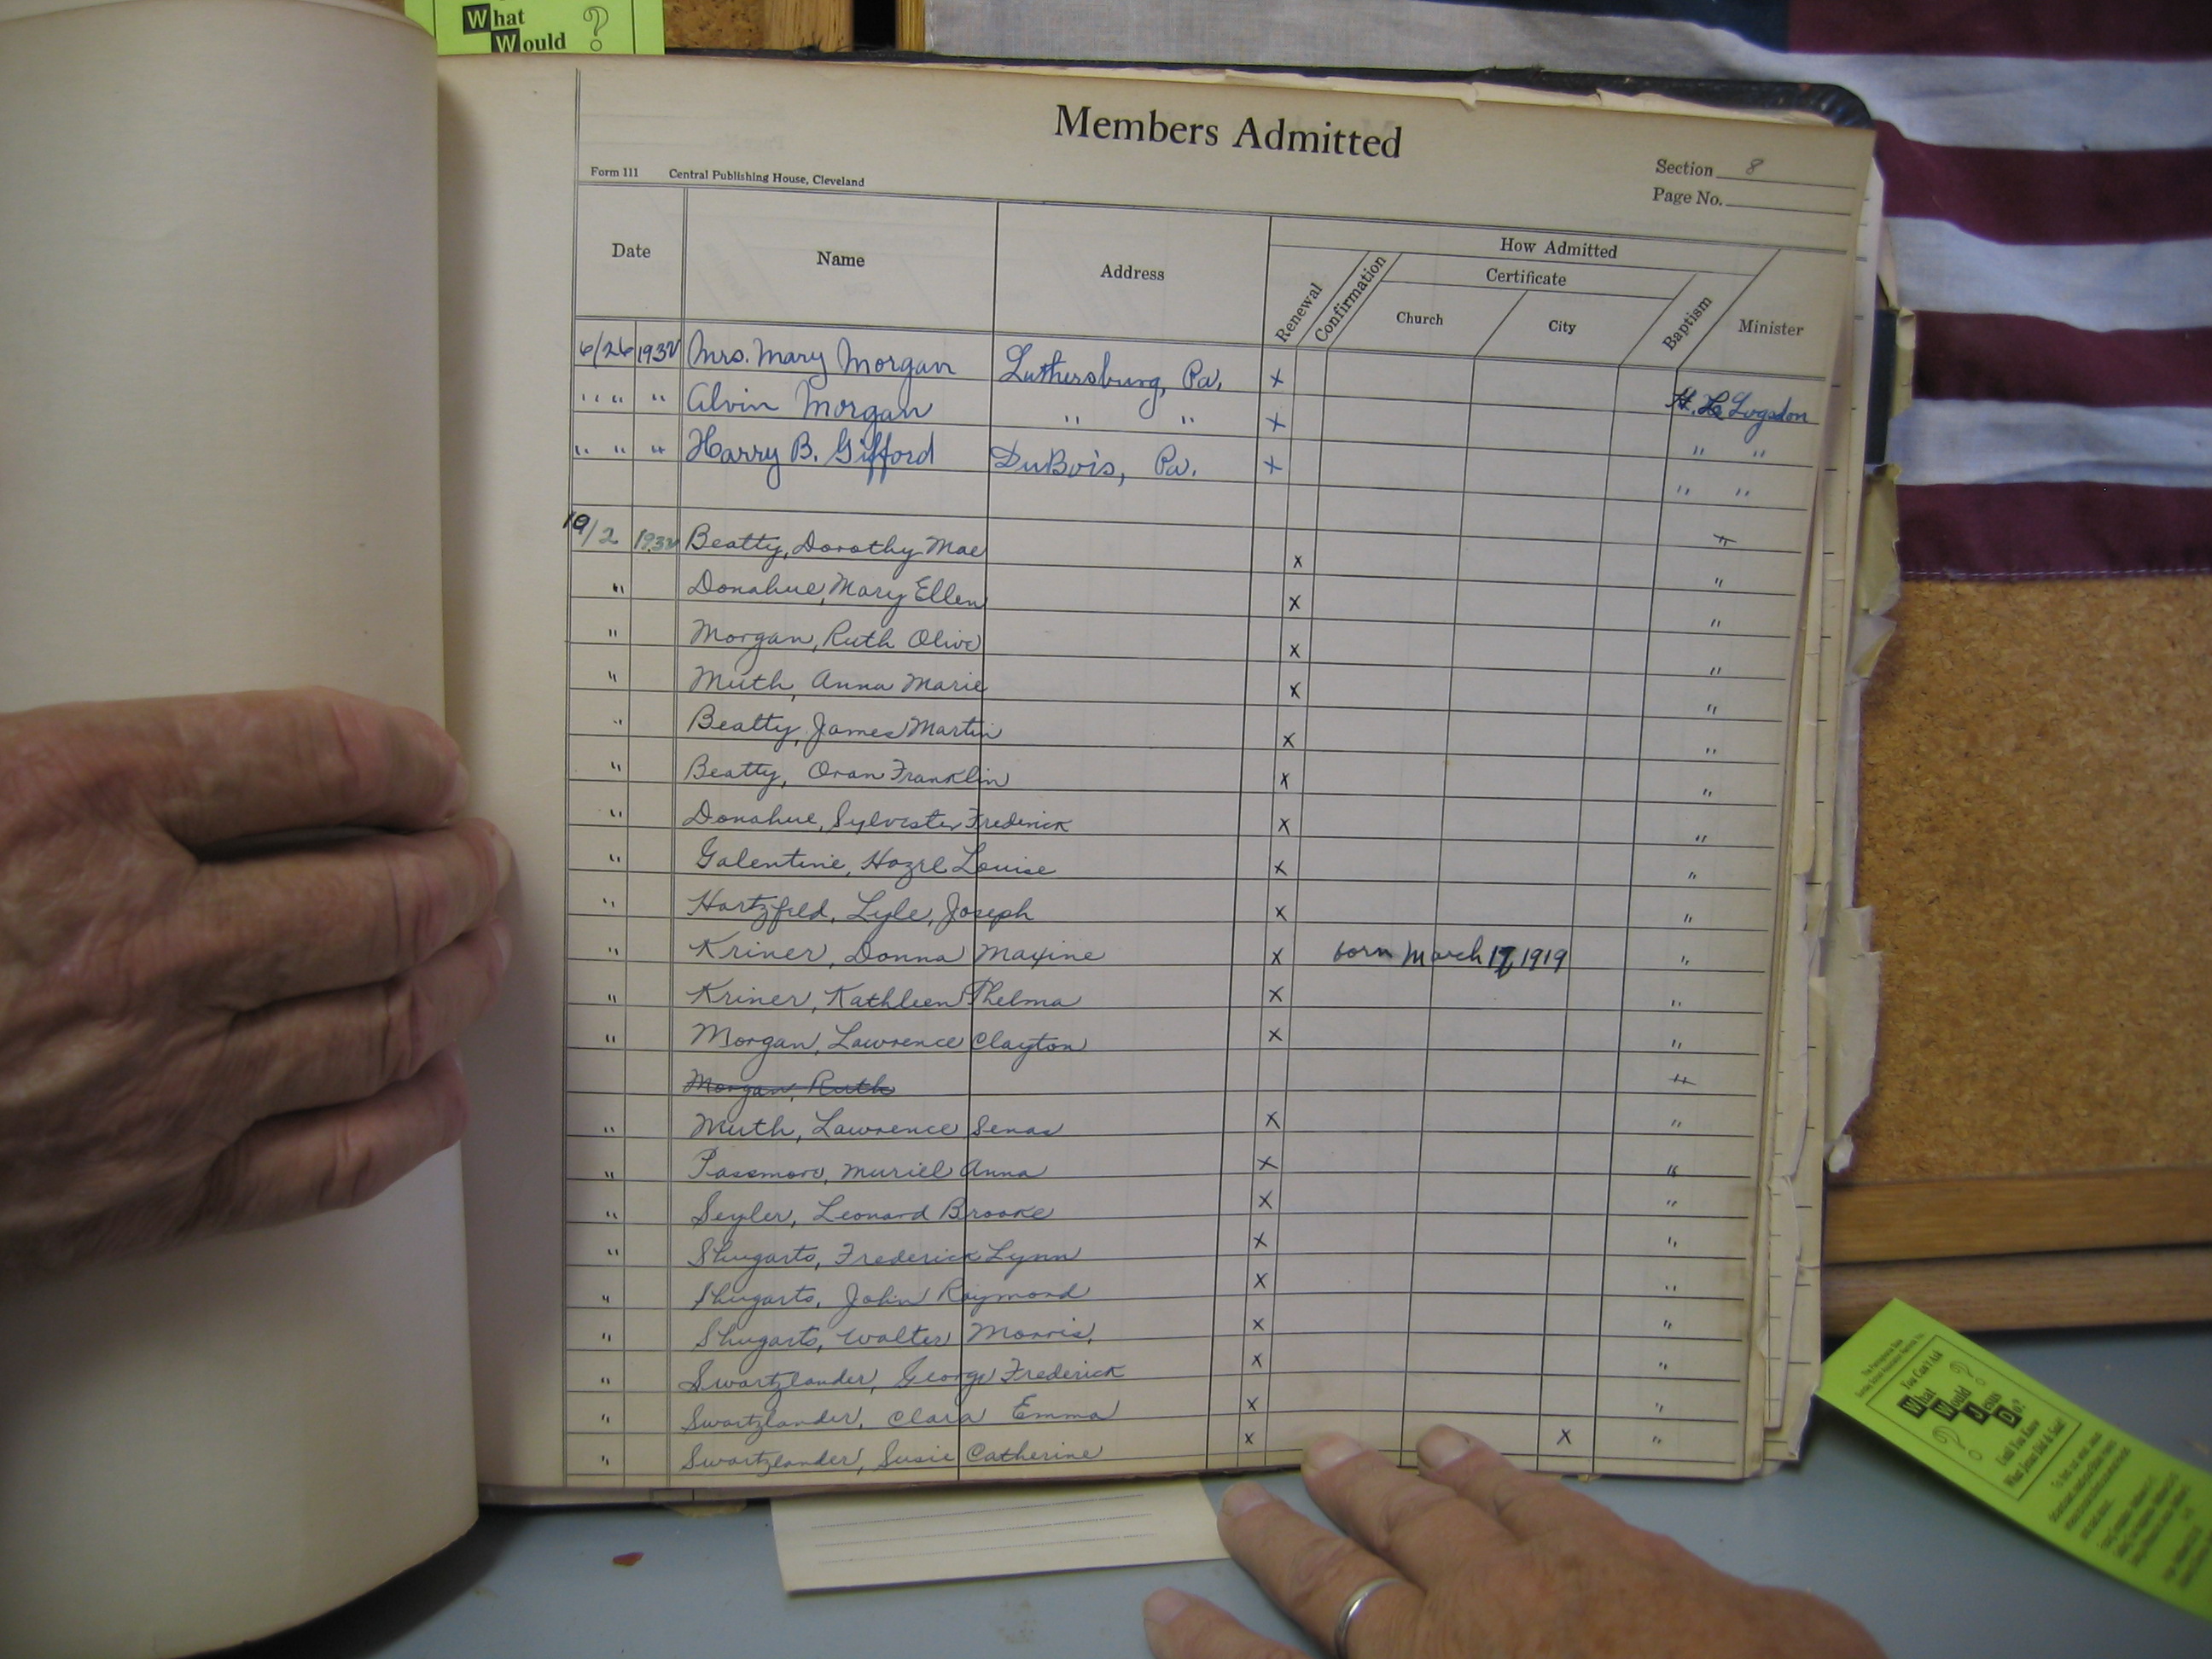 What
Would ?
Members Admitted
Form III Central Publishing House, Cleveland
Section 8
Page No.
Date Name Address How Admitted
Renewal Confirmation Certificate Church City Baptism Minister
6/26 1932 Mrs. Mary Morgan Luthersburg, Pa. x H. L. Logsdon
" " " Alvin Morgan " " x " "
" " " Harry B. Gifford DuBois, Pa. x " "
10/2 1932 Beatty, Dorothy Mae x "
" Donahue, Mary Ellen x "
" Morgan, Ruth Olive x "
" Muth, Anna Marie x "
" Beatty, James Martin x "
" Beatty, Oran Franklin x "
" Donahue, Sylvester Frederick x "
" Galentine, Hazel Louise x "
" Hartzfeld, Lyle, Joseph x "
" Kriner, Donna Maxine x born March 17, 1919 "
" Kriner, Kathleen Thelma x "
" Morgan, Lawrence Clayton x "
Morgan, Ruth "
" Muth, Lawrence Senas x "
" Passmore, Muriel Anna x "
" Seyler, Leonard Brooke x "
" Shugarts, Frederick Lynn x "
" Shugarts, John Raymond x "
" Shugarts, Walter Morris, x "
" Swartzlander, George Frederick x "
" Swartzlander, Clara Emma x "
" Swartzlander, Susie Catherine x X "
You Can't Ask
What
Would
Jesus
Do?
Until You Know
What Jesus Did & Said!